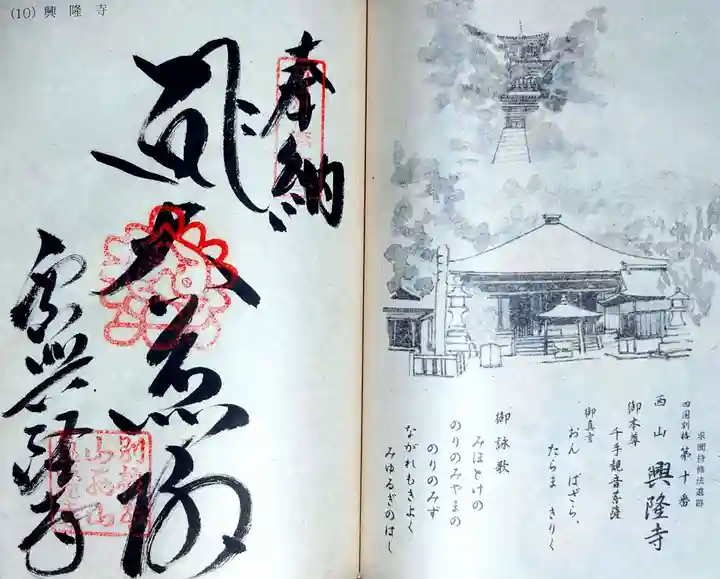 求聞持修法遺跡
四国別格 第十番
西山 興隆寺
御本尊
千手観音菩薩
御真言
おん ばざら、
たらま きりく
御詠歌
みほとけの
のりのみやまの
のりのみず
ながれもきよく
みゆるぎのはし
(10) 興隆寺
奉納
興隆寺